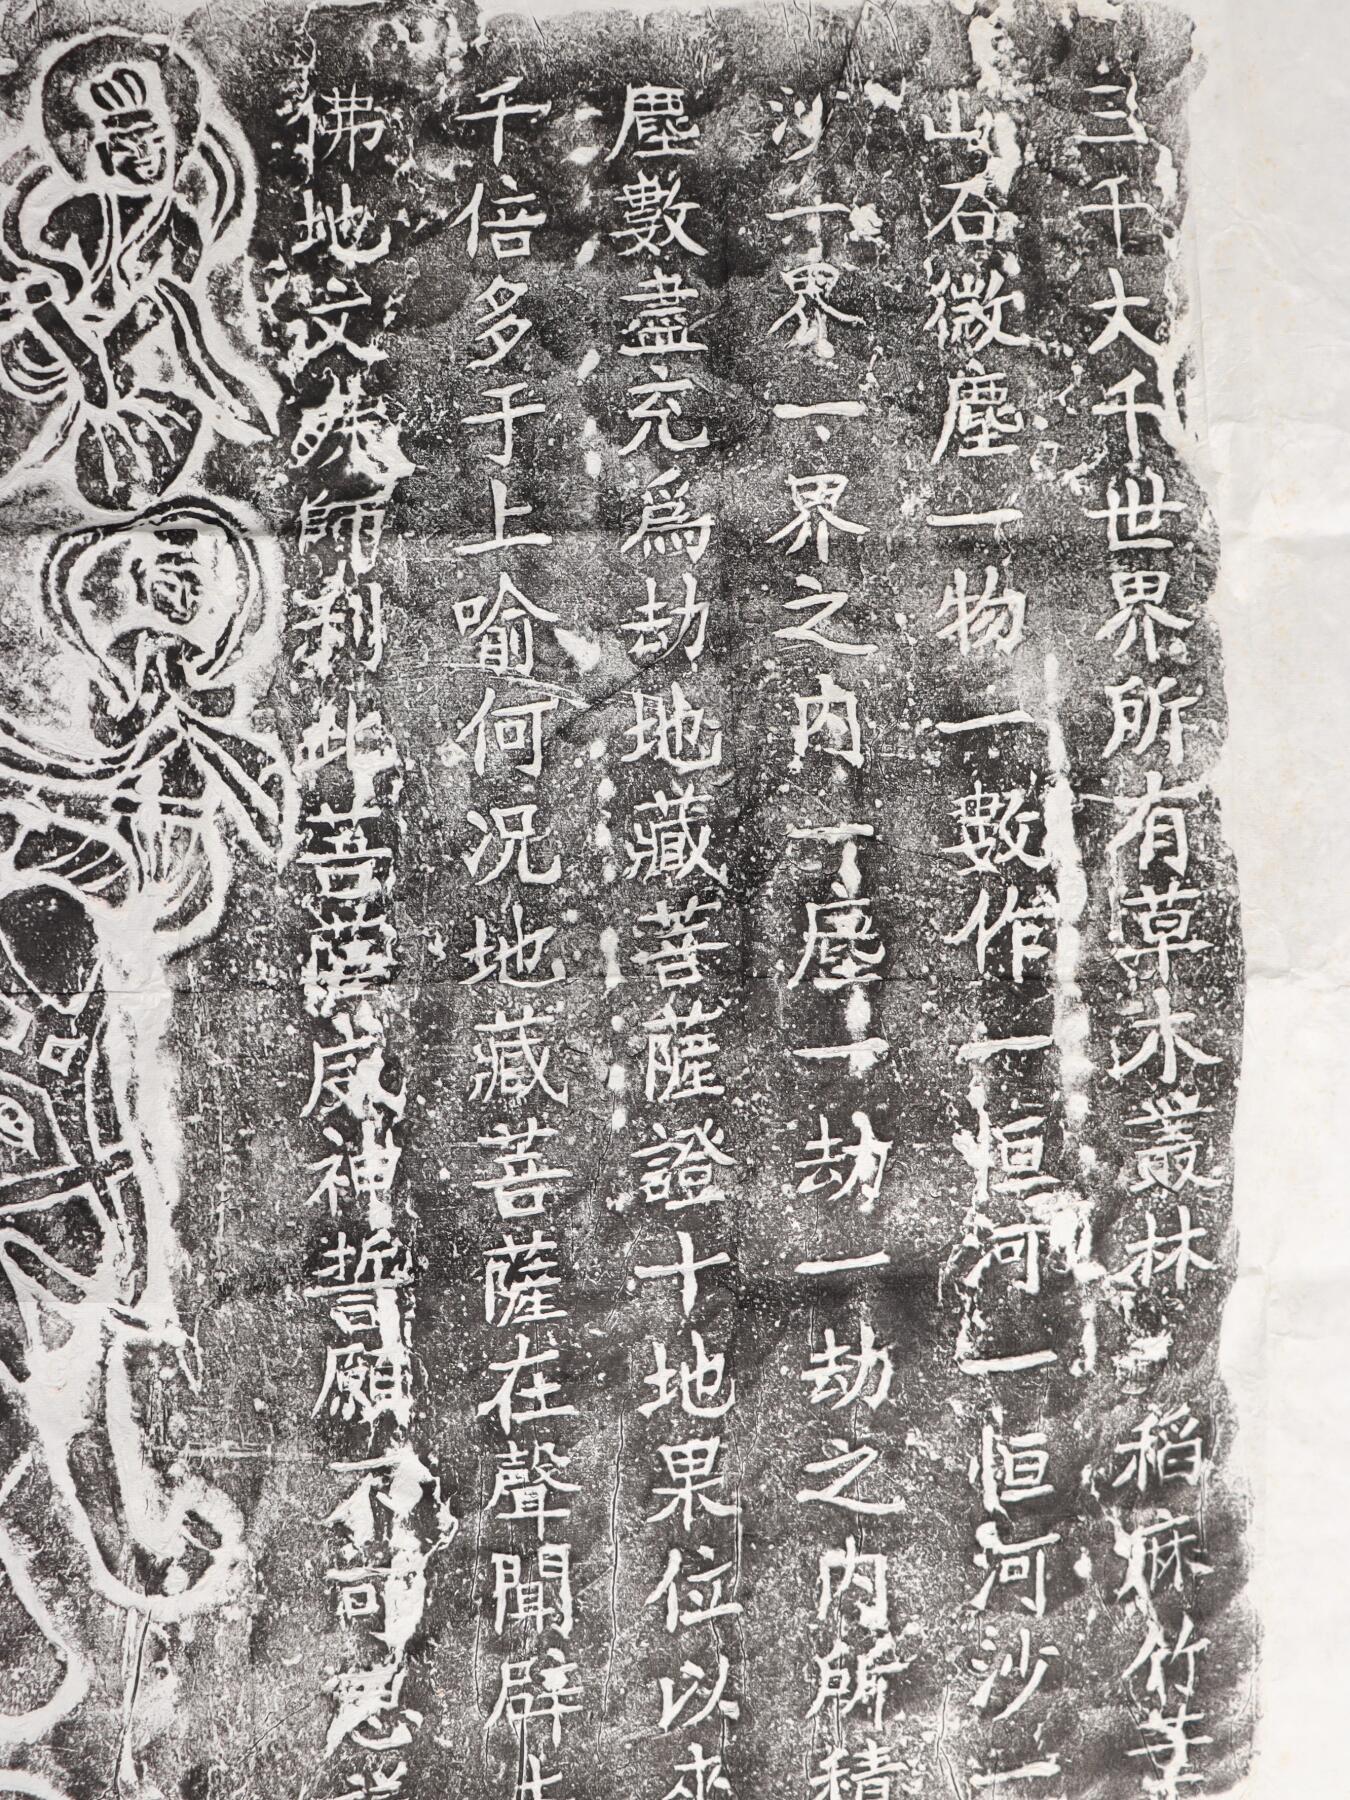 三千大千世界所有草木叢林稻麻竹葦
山石微塵一物一數作一恒河一恒河沙一
沙一界一界之内一塵一劫一劫之内所積
塵數盡充爲劫地藏菩薩證十地果位以來
千倍多于上喻何况地藏菩薩在聲聞辟支
佛地文殊師利此菩薩威神誓願不可思議